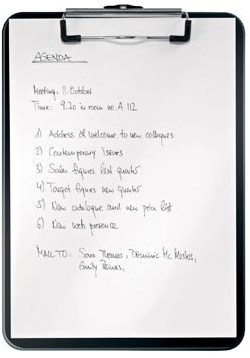 AGENDA
Meeting, 11. October
Time: 9.20 in room no. A 112
1) Address of welcome to new collegues
2) Contemporary Issues
3) Sales figures last quarter
4) Target figures new quarter
5) New catalogue and new price list
6) New web presence
MAIL TO: Sam Thomas, Dominic Mc
Emily